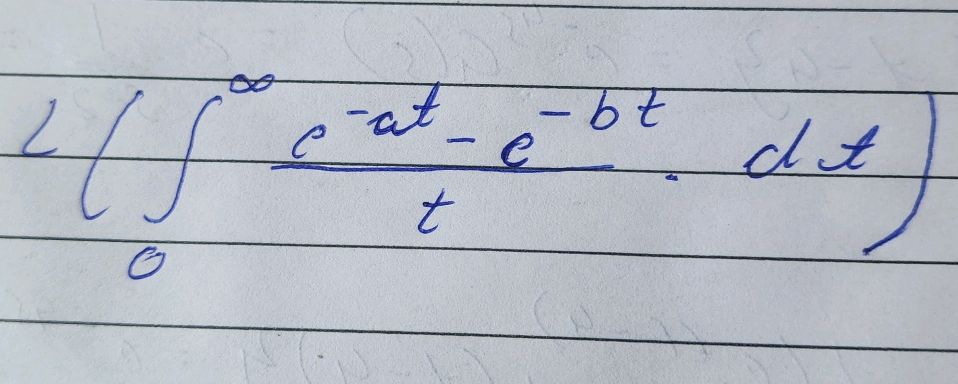 L ( ∫₀^∞ (e^{-at} - e^{-bt})/t . dt )